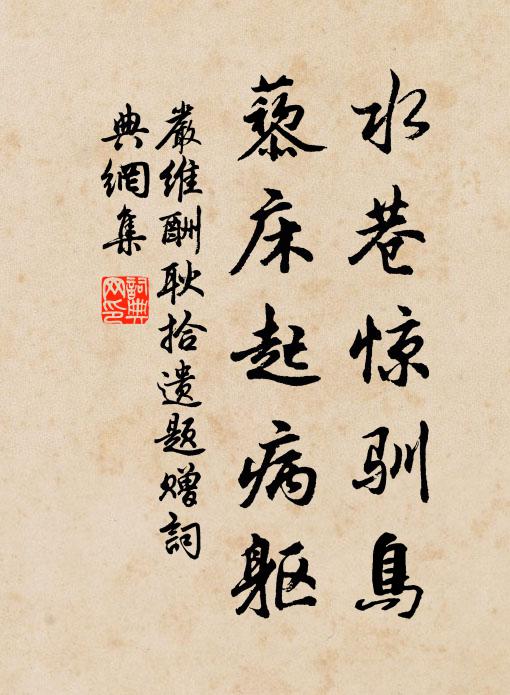 水巷惊驯鳥
藜床起病躯
嚴维酬耿拾遗题赠詞
典網集
詞典
网印